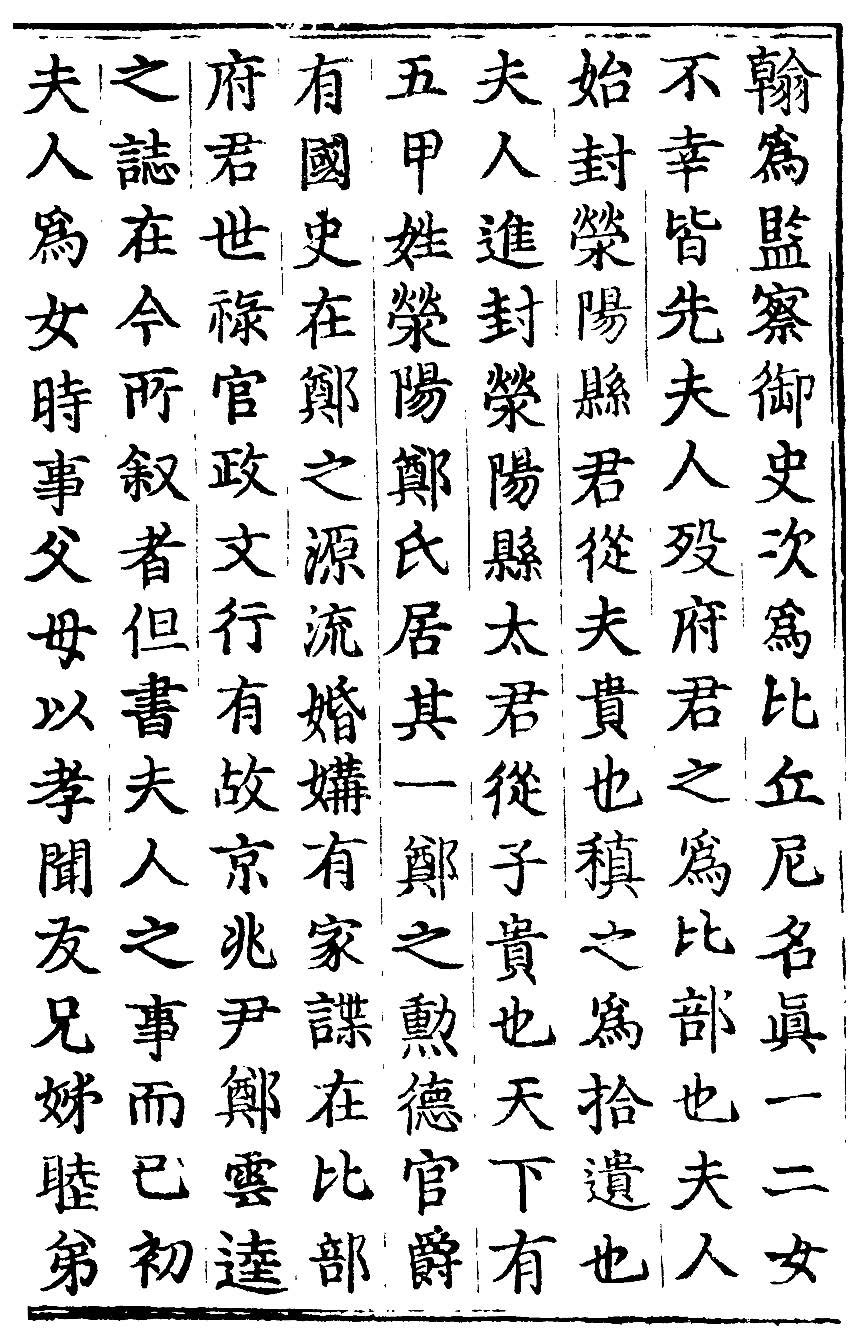 翰為監察御史次為比丘尼名眞一二女
不幸皆先夫人殁府君之為比部也夫人
始封滎陽縣君從夫貴也稹之為拾遺也
夫人進封滎陽縣太君從子貴也天下有
五甲姓滎陽鄭氏居其一鄭之勲德官爵
有國史在鄭之源流婚媾有家諜在比部
府君世祿官政文行有故京兆尹鄭雲逵
之誌在今所叙者但書夫人之事而已初
夫人為女時事父母以孝聞友兄姊睦弟